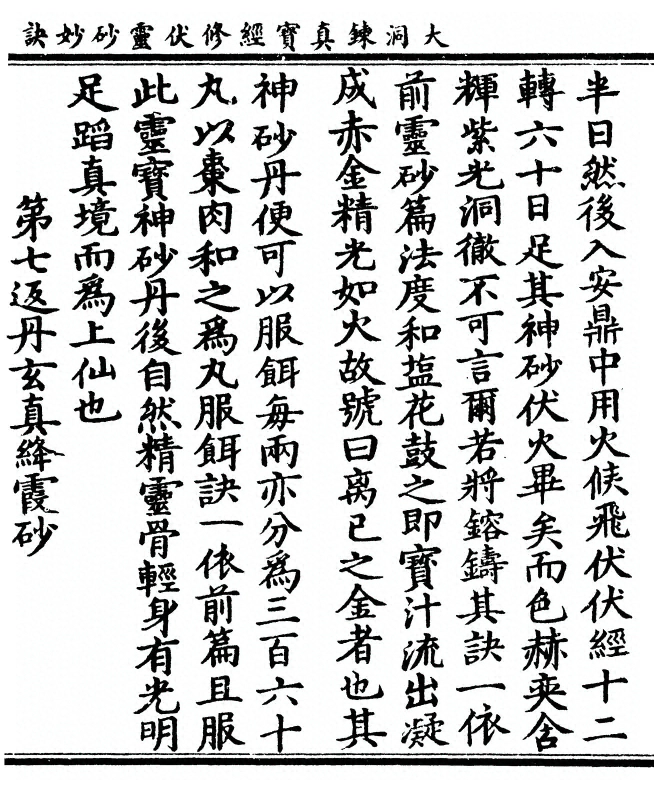 大洞鍊真寶經修伏靈砂妙訣
半日然後入安鼎中用火候飛伏伏經十二
轉六十日足其神砂伏火畢矣而色赫奕含
輝紫光洞徹不可言爾若將鎔鑄其訣一依
前靈砂篇法度和塩花鼓之即寶汁流出凝
成赤金精光如火故號曰离已之金者也其
神砂丹便可以服餌每兩亦分爲三百六十
丸以棗肉和之爲丸服餌訣一依前篇且服
此靈寶神砂丹後自然精靈骨輕身有光明
足蹈真境而爲上仙也
第七返丹玄真絳霞砂